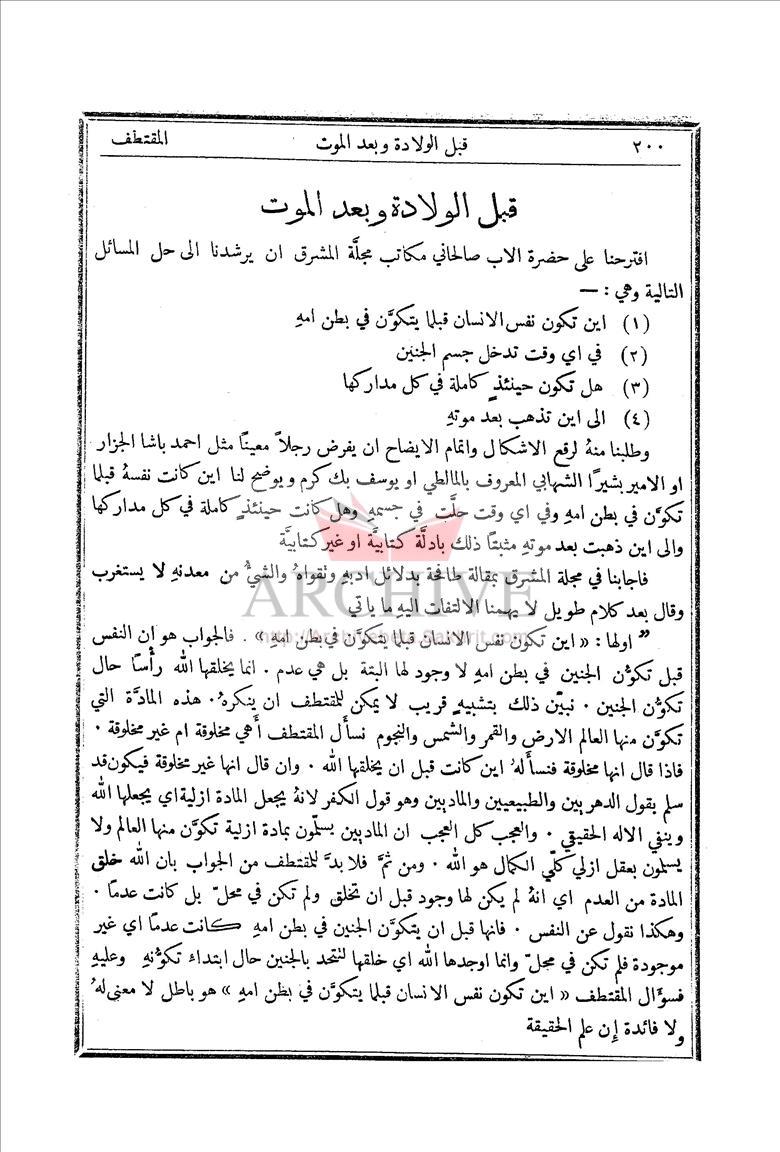 ٢٠٠ قبل الولادة وبعد الموت المقتطف
قبل الولادة وبعد الموت
اقترحنا على حضرة الاب صالحاني مكاتب مجلَّة المشرق ان يرشدنا الى حل المسائل
التالية وهي : —
(١) اين تكون نفس الانسان قبلما يتكوَّن في بطن امهِ
(٢) في اي وقت تدخل جسم الجنين
(٣) هل تكون حينئذٍ كاملة في كل مداركها
(٤) الى اين تذهب بعد موتهِ
وطلبنا منهُ لرفع الاشكال واتمام الايضاح ان يفرض رجلاً معيناً مثل احمد باشا الجزار
او الامير بشيرًا الشهابي المعروف بالمالطي او يوسف بك كرم ويوضح لنا اين كانت نفسهُ قبلما
تكوَّن في بطن امهِ وفي اي وقت حلَّت في جسمهِ وهل كانت حينئذٍ كاملة في كل مداركها
والى اين ذهبت بعد موتهِ مثبتاً ذلك بادلَّة كتابيَّة او غير كتابيَّة
فاجابنا في مجلة المشرق بمقالة طافحة بدلائل ادبهِ وتقواهُ والشيءُ من معدنهِ لا يستغرب
وقال بعد كلام طويل لا يهمنا الالتفات اليهِ ما ياتي
ARCHIVE
" اولها : « اين تكون نفس الانسان قبلما يتكوَّن في بطن امهِ » . فالجواب هو ان النفس
قبل تكوُّن الجنين في بطن امهِ لا وجود لها البتة بل هي عدم . انما يخلقها الله رأْسًا حال
تكوُّن الجنين . نبيّن ذلك بتشبيهٍ قريب لا يمكن للمقتطف ان ينكرهُ . هذه المادَّة التي
تكوَّن منها العالم الارض والقمر والشمس والنجوم نسأَل المقتطف أَهي مخلوقة ام غير مخلوقة .
فاذا قال انها مخلوقة فنسأَلهُ اين كانت قبل ان يخلقها الله . وان قال انها غير مخلوقة فيكون قد
سلم بقول الدهريين والطبيعيين والماديين وهو قول الكفر لانهُ يجعل المادة ازلية اي يجعلها الله
وينفي الاله الحقيقي . والعجب كل العجب ان الماديين يسلّمون بمادة ازلية تكوَّن منها العالم ولا
يسلمون بعقل ازلي كلّي الكمال هو الله . ومن ثمَّ فلا بدَّ للمقتطف من الجواب بان الله خلق
المادة من العدم اي انهُ لم يكن لها وجود قبل ان تخلق ولم تكن في محلّ بل كانت عدمًا .
وهكذا نقول عن النفس . فانها قبل ان يتكوَّن الجنين في بطن امهِ كانت عدمًا اي غير
موجودة فلم تكن في محلّ وانما اوجدها الله اي خلقها لتتحد بالجنين حال ابتداء تكوُّنهِ وعليهِ
فسؤال المقتطف « اين تكون نفس الانسان قبلما يتكوَّن في بطن امهِ » هو باطل لا معنى لهُ
ولا فائدة إِن علم الحقيقة